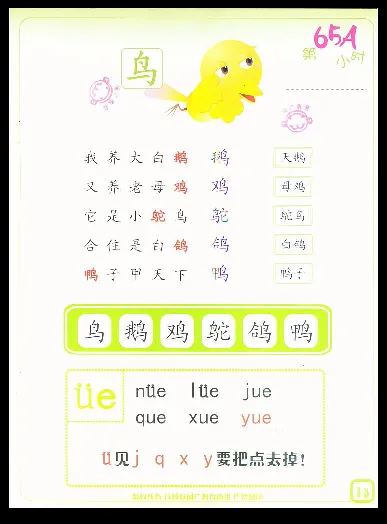 鸟
第65A小时
我养大白鹅 鹅 天鹅
又养老母鸡 鸡 母鸡
它是小鸵鸟 鸵 鸵鸟
合住是白鸽 鸽 白鸽
鸭子甲天下 鸭 鸭子
鸟 鹅 鸡 鸵 鸽 鸭
üe
nüe lüe jue
que xue yue
ü见j q x y要把点去掉!